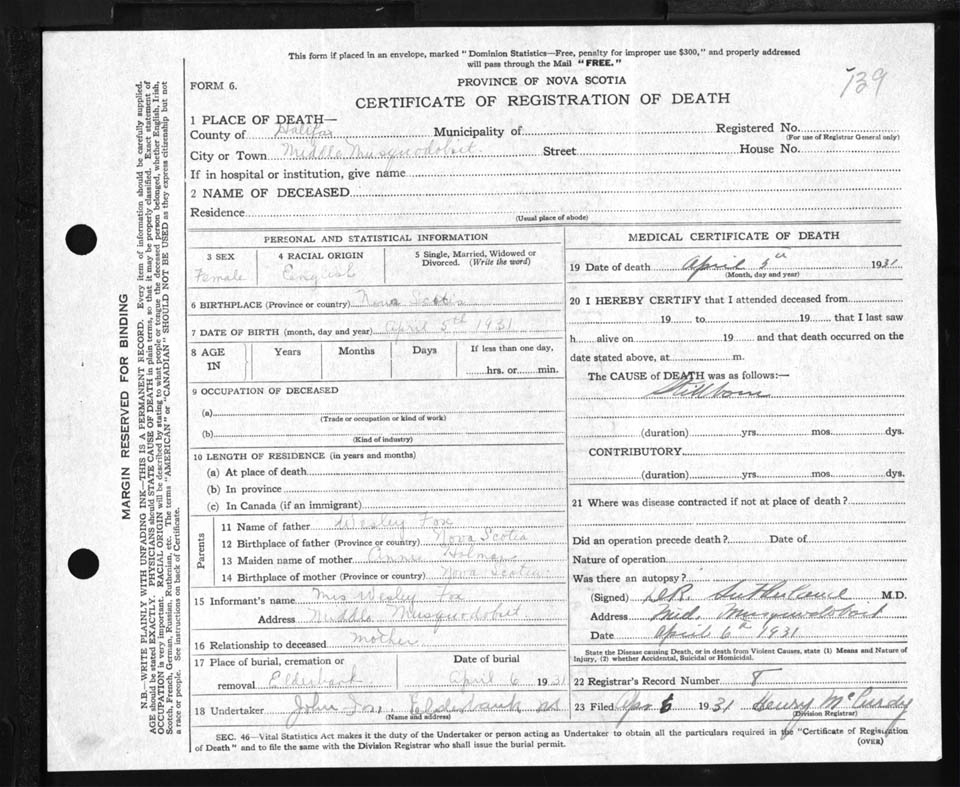 This form if placed in an envelope, marked "Dominion Statistics—Free, penalty for improper use $300," and properly addressed
will pass through the Mail "FREE."
139
FORM 6.
PROVINCE OF NOVA SCOTIA
CERTIFICATE OF REGISTRATION OF DEATH
1 PLACE OF DEATH—
County of Halifax Municipality of Registered No.
(For use of Registrar General only)
City or Town Middle Musquodoboit Street House No.
If in hospital or institution, give name
2 NAME OF DECEASED
Residence
(Usual place of abode)
PERSONAL AND STATISTICAL INFORMATION
3 SEX 4 RACIAL ORIGIN 5 Single, Married, Widowed or
Divorced. (Write the word)
Female English
6 BIRTHPLACE (Province or country) Nova Scotia
7 DATE OF BIRTH (month, day and year) April 5th 1931
8 AGE IN Years Months Days If less than one day,
hrs. or min.
9 OCCUPATION OF DECEASED
(a)
(Trade or occupation or kind of work)
(b)
(Kind of industry)
10 LENGTH OF RESIDENCE (in years and months)
(a) At place of death
(b) In province
(c) In Canada (if an immigrant)
Parents
11 Name of father Wesley Fox
12 Birthplace of father (Province or country) Nova Scotia
13 Maiden name of mother Annie Holman
14 Birthplace of mother (Province or country) Nova Scotia
15 Informant's name Mrs Wesley Fox
Address Middle Musquodobut
16 Relationship to deceased mother
17 Place of burial, cremation or Date of burial
removal Eldersbank April 6 1931
18 Undertaker John Fox. Eldersbank NS
(Name and address)
MEDICAL CERTIFICATE OF DEATH
19 Date of death April 5th 1931
(Month, day and year)
20 I HEREBY CERTIFY that I attended deceased from
19 to 19 that I last saw
h alive on 19 and that death occurred on the
date stated above, at m.
The CAUSE of DEATH was as follows:—
Stillborn
(duration) yrs. mos. dys.
CONTRIBUTORY
(duration) yrs. mos. dys.
21 Where was disease contracted if not at place of death?
Did an operation precede death? Date of
Nature of operation
Was there an autopsy?
(Signed) D.R. Sutherland M.D.
Address Mid. Musquodoboit
Date April 6th 1931
State the Disease causing Death, or in death from Violent Causes, state (1) Means and Nature of
Injury, (2) whether Accidental, Suicidal or Homicidal.
22 Registrar's Record Number 8
23 Filed Apr 6 1931 Henry McCurdy
(Division Registrar)
SEC. 46—Vital Statistics Act makes it the duty of the Undertaker or person acting as Undertaker to obtain all the particulars required in the "Certificate of Registration
of Death" and to file the same with the Division Registrar who shall issue the burial permit.
(OVER)
MARGIN RESERVED FOR BINDING
N.B.—WRITE PLAINLY WITH UNFADING INK—THIS IS A PERMANENT RECORD. Every item of information should be carefully supplied.
AGE should be stated EXACTLY. PHYSICIANS should STATE CAUSE OF DEATH in plain terms, so that it may be properly classified. Exact statement of
OCCUPATION is very important. RACIAL ORIGIN will be described by stating to what people or tongue the deceased person belonged, whether English, Irish,
Scotch, French, German, Russian, Ruthenian, etc. The terms "AMERICAN" or "CANADIAN" SHOULD NOT BE USED as they express citizenship but not
a race or people. See instructions on back of Certificate.